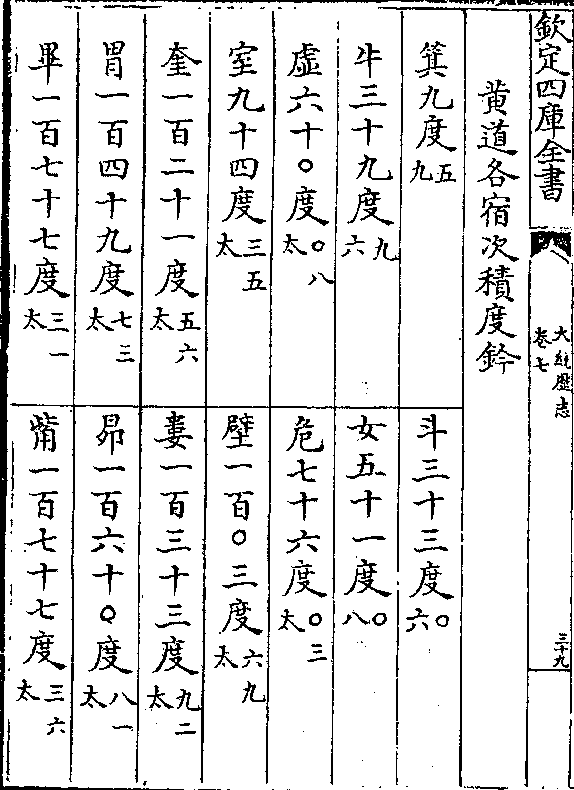 欽定四庫全書
大統厯志
卷七
三十九
黄道各宿次積度鈐
箕九度五九
斗三十三度○六
牛三十九度九六
女五十一度○八
虛六十○度○八太
危七十六度○三太
室九十四度三五太
壁一百○三度六九太
奎一百二十一度五六太
婁一百三十三度九二太
胃一百四十九度七三太
昴一百六十○度八一太
畢一百七十七度三一太
觜一百七十七度三六太